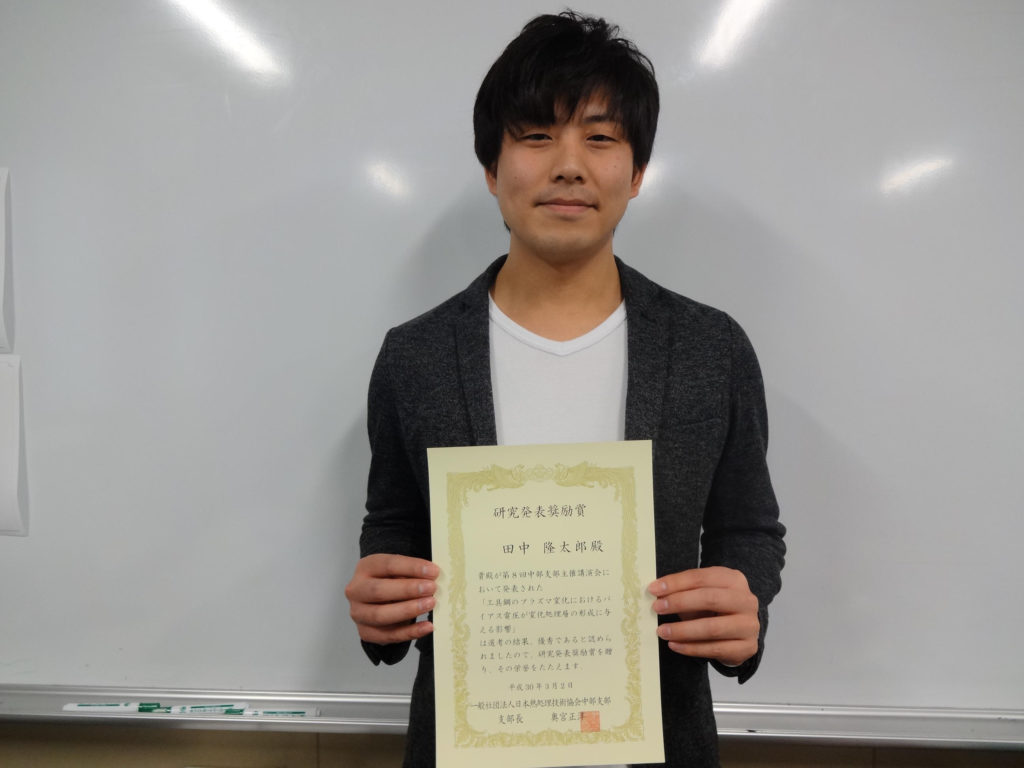 研究発表奨励賞
田中 隆太郎殿
貴殿が第8回中部支部主催講演会に
おいて発表された
「工具鋼のプラズマ窒化におけるバ
イアス電圧が窒化処理層の形成に与
える影響」
は選考の結果、優秀であると認めら
れましたので、研究発表奨励賞を贈
り、その栄誉をたたえます。
平成30年3月2日
一般社団法人日本熱処理技術協会中部支部
支部長 奥宮正洋